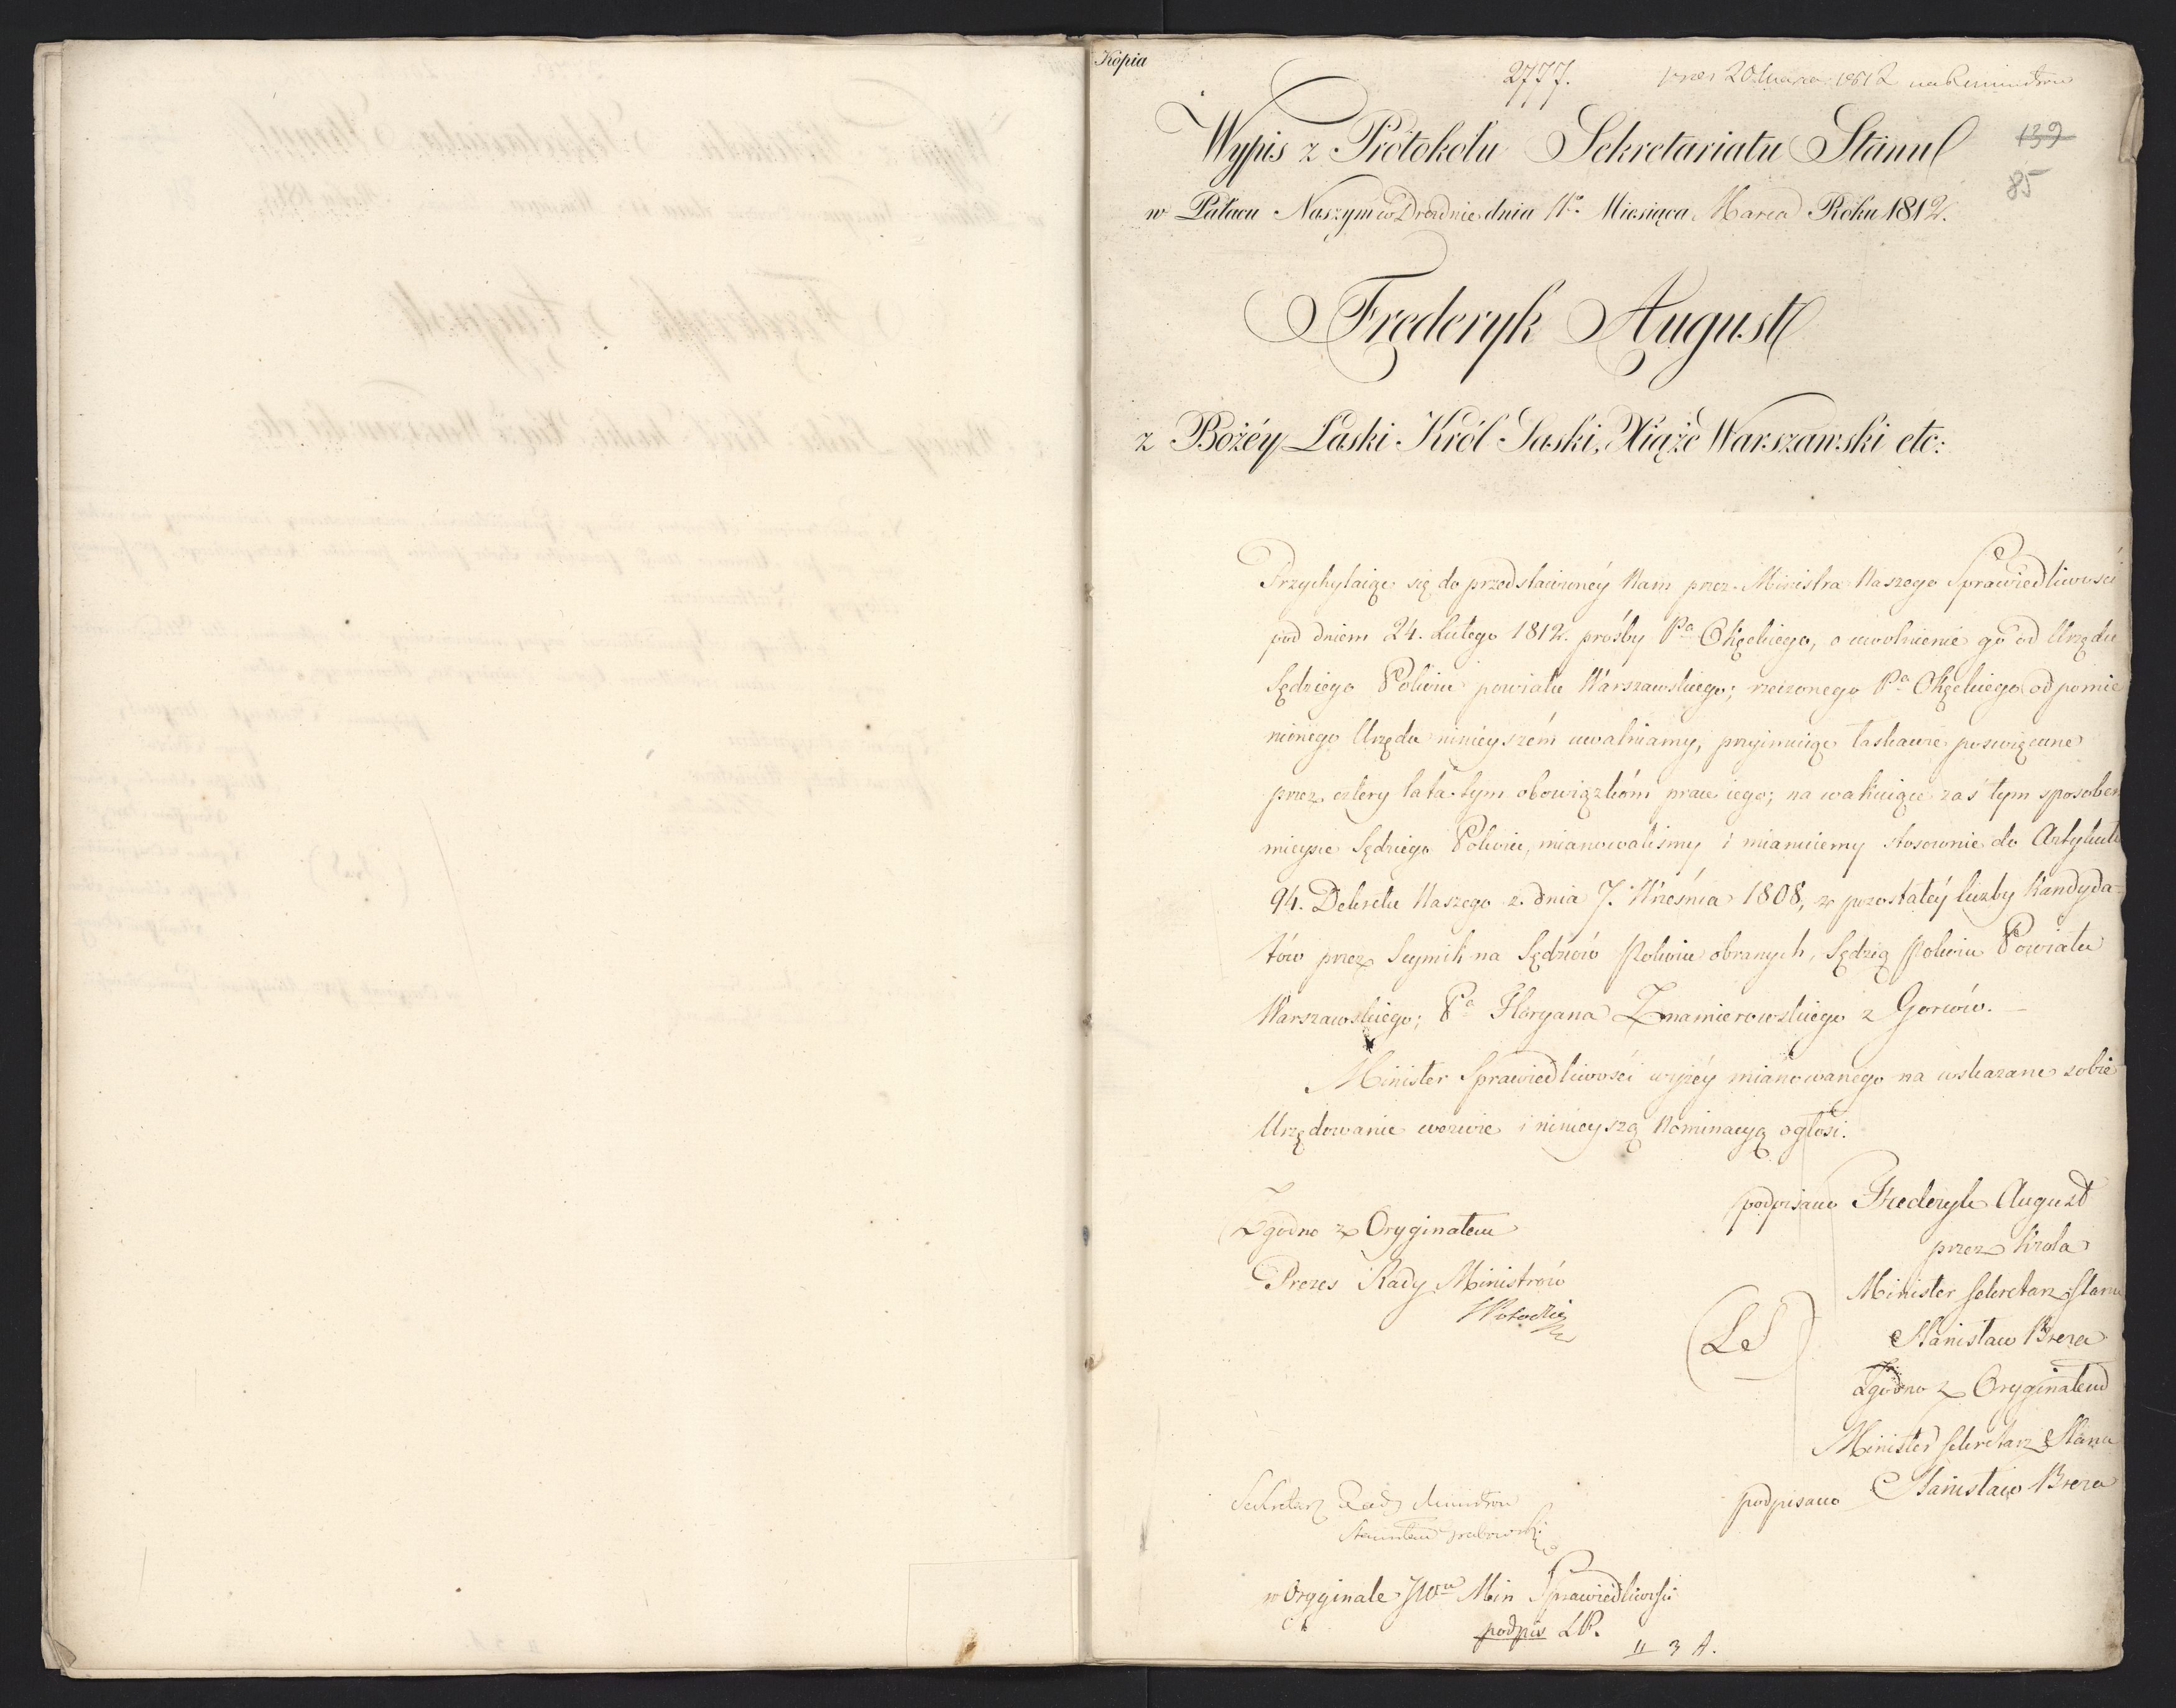 Kopia
2777.
pres 20 Marca 1812 na R. Ministrów
139
85
Wypis z Protokółu Sekretariatu Stanu
w Pałacu Naszym w Dreźnie dnia 11o Miesiąca Marca Roku 1812.
Fryderyk August
z Bożéy Łaski Król Saski, Xiąże Warszawski etc:
Przychylaiąc się do przedstawionéy Nam przez Ministra Naszego Sprawiedliwości
pod dniem 24. Lutego 1812. prośby Pa Okęckiego, o uwolnienie go od Urzędu
Sędziego Pokoiu powiatu Warszawskiego; rzeczonego Pa Okęckiego od pomie
nionego Urzędu ninieyszém uwalniamy, przyimuiąc łaskawie poswięcone
przez cztery lata tym obowiązkóm prace iego; na wakuiące zaś tym sposobem
mieysce Sędziego Pokoiu, mianowaliśmy i mianuiemy stosownie do Artykułu
94. Dekretu Naszego z dnia 7. Wreśnia 1808, z pozostałéy liczby Kandyda-
tów przez Seymik na Sędziów Pokoiu obranych, Sędzią Pokoiu Powiatu
Warszawskiego; Pa Floryana Znamierowskiego z Gorców.
Minister Sprawiedliwości wyżéy mianowanego na wskazane sobie
Urzędowanie wezwie i ninieyszą Nominacyą ogłosi.
podpisano Fryderyk August
przez Króla
Minister Sekretarz Stanu
Stanisław Breza
Zgodno z Oryginałem
Minister Sekretarz Stanu
podpisano Stanisław Breza
(LS)
Zgodno z Oryginałem
Prezes Rady Ministrów
Sekretarz Rady Ministrów
Stanisław Grabowski
w Oryginale JWmu Min Sprawiedliwości
podpis LP.
II 3 A.